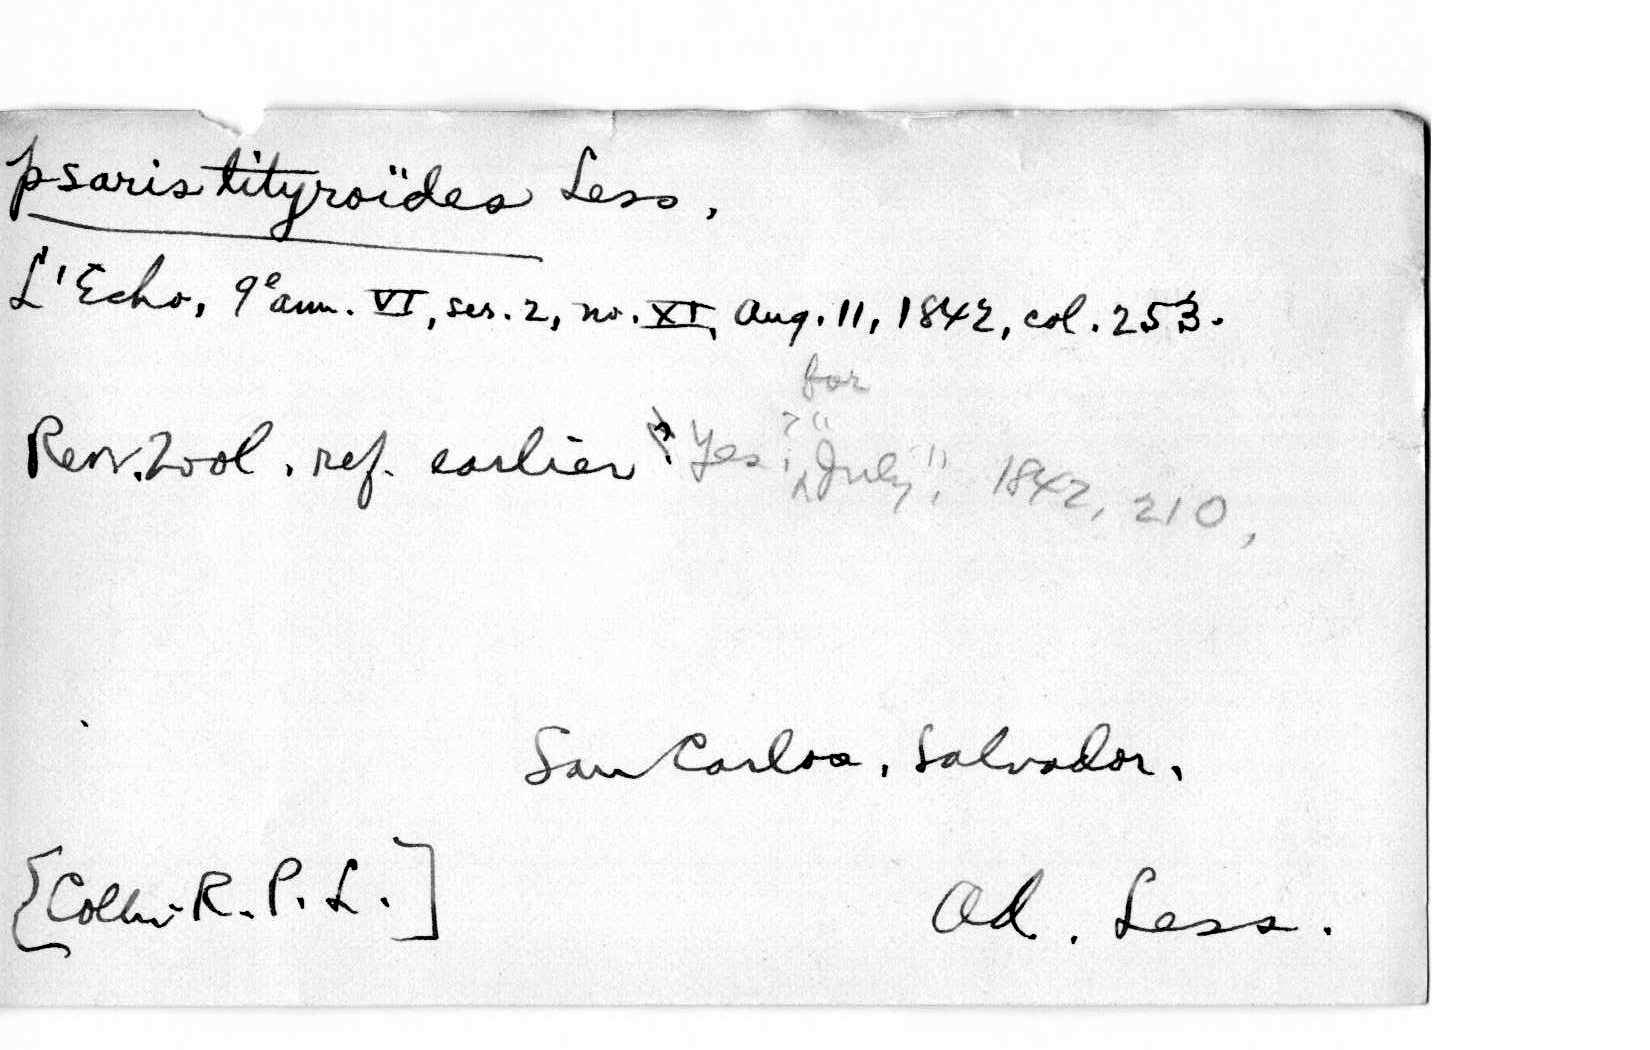 psaris tityroïdes Less,
L'Echo, 9e ann. VI, ser. 2, no. XI, Aug. 11, 1842, col. 253.
for
Rev. Zool. ref. earlier? Yes? "July", 1842, 210,
San Carlos, Salvador.
[Colln. R. P. L.] Ad. Less.